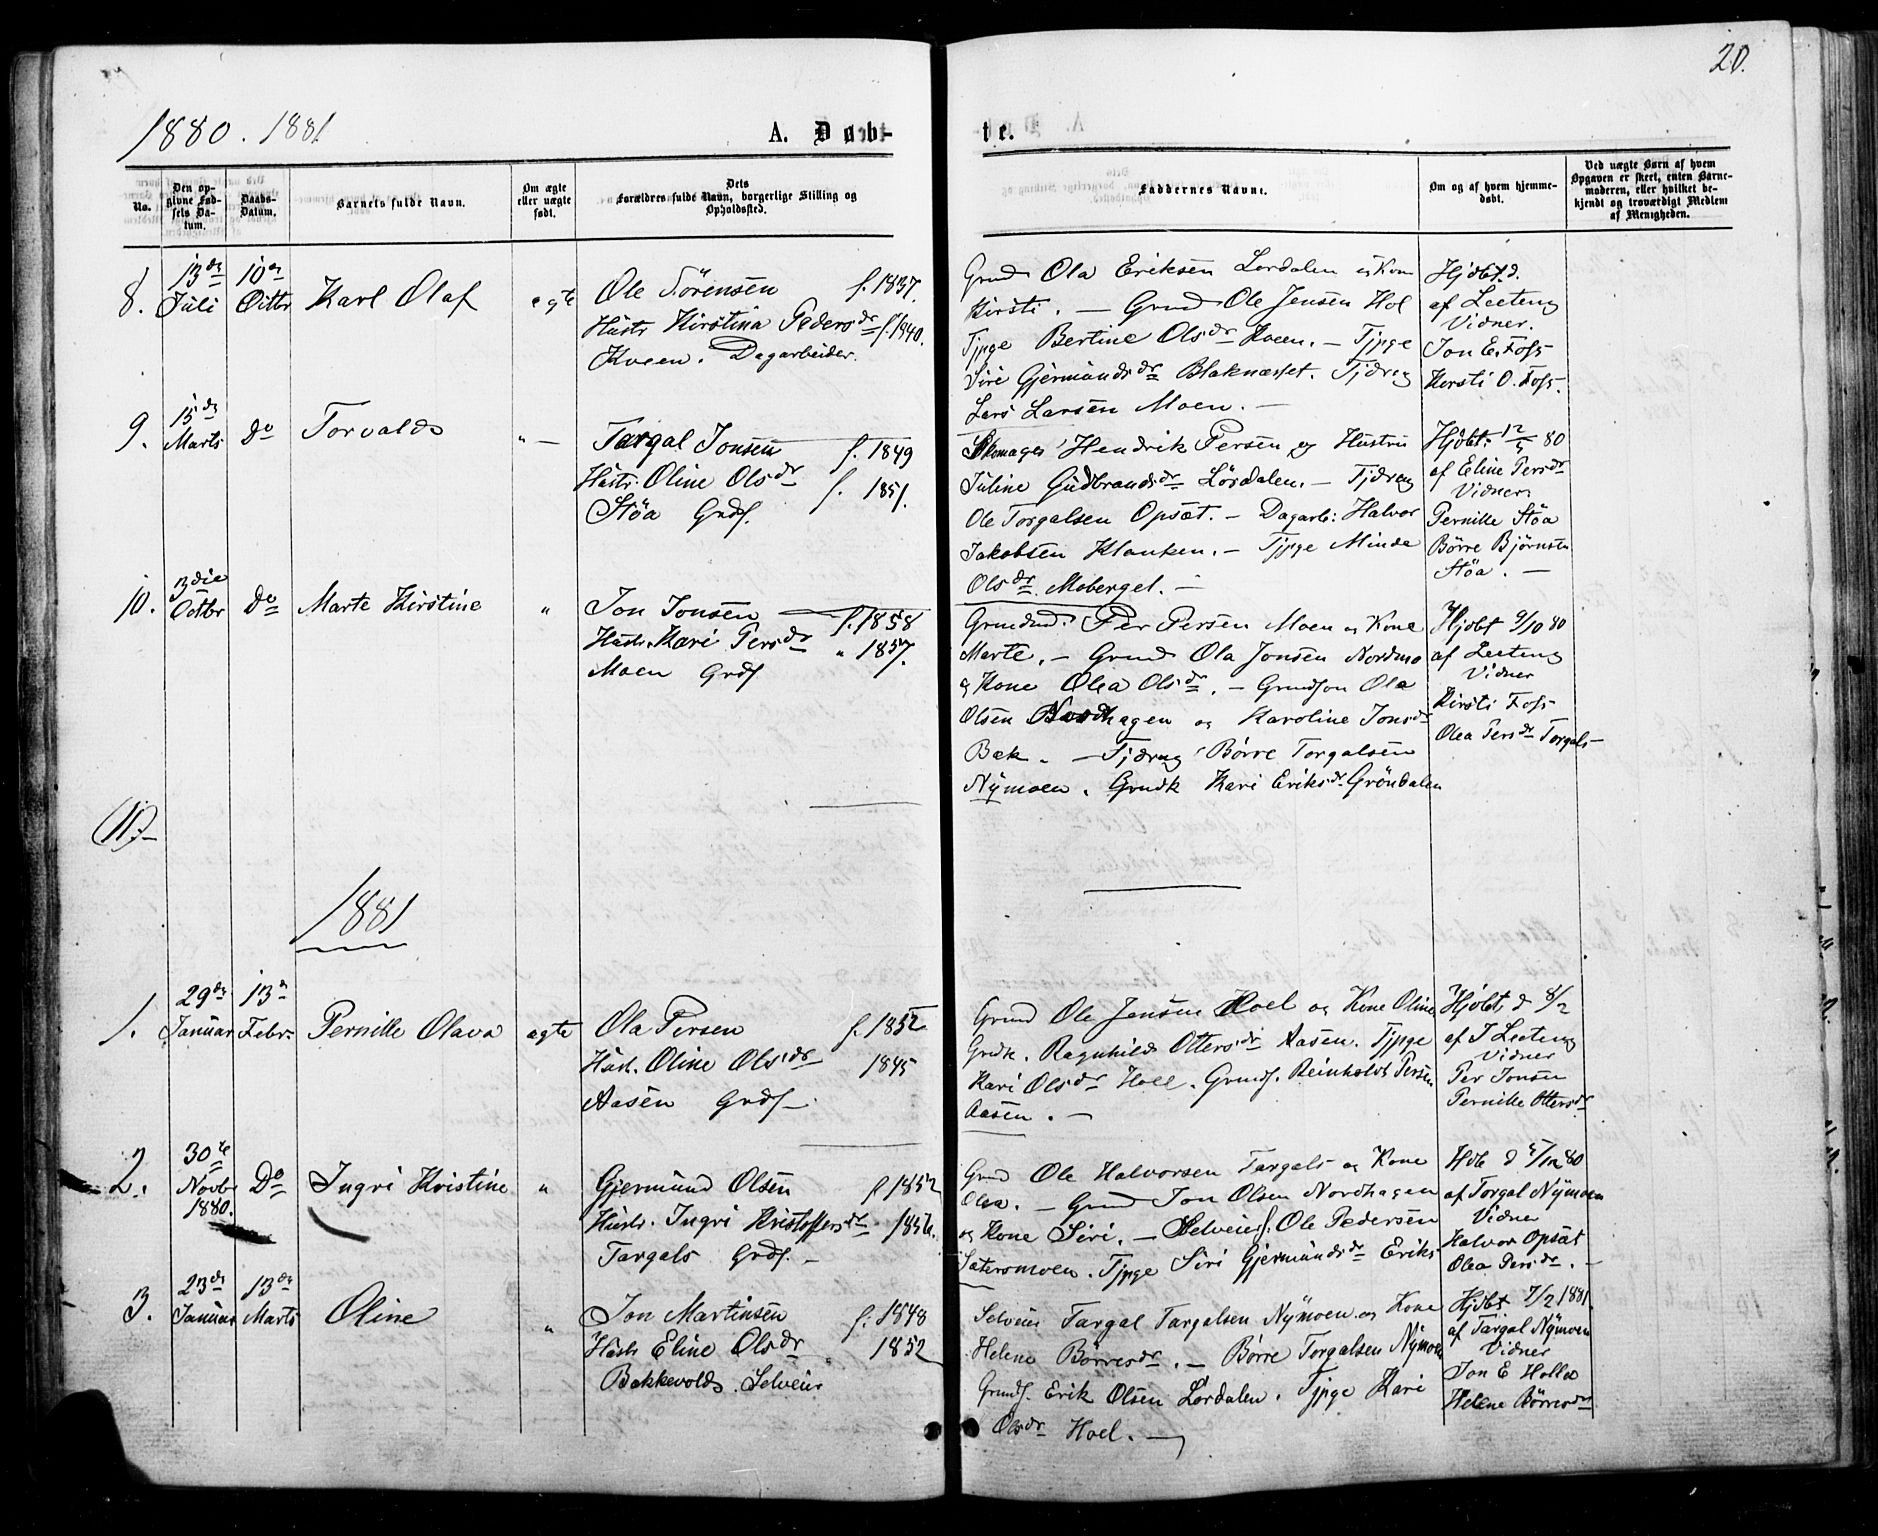 20.
1880. 1881
A. Døb-
te.
No.
Den op-
givne Fød-
sels Da-
tum.
Daabs-
Datum.
Barnets fulde Navn.
Om ægte
eller uægte
født.
Dets
Forældres fulde Navn, borgerlige Stilling og
Opholdssted.
Faddernes Navne.
Om og af hvem hjemme-
døbt.
Ved uægte Børn af hvem
Opgaven er skeet, enten Barne-
moderen, eller hvilket be-
kjendt og troværdigt Medlem
af Menigheden.
8.
13de
Juli
10de
Octbr
Karl Olaf
egte
Ole Sörensen f. 1837.
Hustr. Kirstina Pedersdr f. 1940.
Kveen. Dagarbeider.
Grund Ola Eriksen Lordalen og Kon
Kirsti. — Grund Ole Jensen Hol
Tjpge Bertine Olsdr Kveen. — Tjpge
Siri Gjermundsdr Blaknæsset. Tjdreng
Lars Larsen Moen. —
Hjdbt d.
af Leeteng
Vidner.
Jon E. Foss
Kersti O. Foss.
9.
15de
Marts
Do
Torvald
" —
Targal Jonsen f. 1849
Hustr. Oline Olsdr f. 1851.
Stöa Grdf.
Skomager Hendrik Persen og Hustru
Juline Gudbrandsdr. Lördalen. — Tjdreng
Ole Torgalsen Opsæt. — Dagarb: Halvor
Jakobsen Klanken. — Tjpge Minda
Olsdr. Moberget. —
Hjöbt. 12/5 80
af Eline Persdr
Vidner
Pernille Stöa
Börre Björnsen
Stöa. —
10.
3die
Octbr
Do
Marte Kirstine
"
Jon Jonsen f. 1858
Hustr. Kari Persdr " 1857.
Moen Grdf
Grundmd. Per Persen Moen og Kone
Marte. — Grund Ola Jonsen Nordmo
og Kone Olea Olsdr. — Grundson Ole
Olsen Nordhagen og Karoline Jonsdr
Bæk. — Tjdreng Börre Torgalsen
Nÿmoen. Grndk Kari Eriksdr. Gröndalen
Hjdbt 9/10 80
af Leeteng
Vidner
Kirsti Foss
Olea Persdr Torgals —
1881
1.
29de
Januar
13de
Febr.
Pernille Olava
egte
Ola Persen f. 1852
Hust. Oline Olsdr 1845
Aasen Grdf —
Grund Ole Jensen Hoel og Kone Oline
Grdk. Ragnhild Ottersdr Aasen. Tjpge
Kari Olsdr Hoel. Grundf. Reinholdt Persen
Aasen. —
Hjdbt. d 8/2
af J Leeteng
Vidner
Per Jonsen
Pernille Ottersdr
2.
30te
Novbr
1880.
Do
Ingri Kristine
"
Gjermund Olsen f 1852
Hustr. Ingri Kristoffersdr. 1856.
Targals Grdf. —
Grund Ole Halvorsen Targals og Kone
Olea. — Grund Jon Olsen Nordhagen
og Kone Siri. — Selveierf. Ole Pedersen
Sätersmoen. Tjpge Siri Gjermundsdr Eriks
Hdb d 5/12 80
af Torgal Nÿmoen
Vidner
Halvor Opsät
Olea Persdr. —
3.
23de
Januar
13de
Marts
Oline
"
Jon Martinsen f. 1848
Hustr Eline Olsdr " 1852
Bakkevold. Selveier
Selveier Targal Targalsen Nÿmoen og Kone
Helene Börresdr. — Börre Torgalsen Nÿmoen
Grundf. Erik Olsen Lordalen. Tjpge Kari
Olsdr Hoel. —
Hjdbt 7/2 1881.
af Targal Nÿmoen
Vidner
Jon E Holla
Helene Börresdr